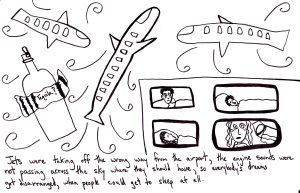 Tequila
Jets were taking off the wrong way from the airport, the engine sounds were
not passing across the sky where they should have, so everybody's dreams
get disarranged, when people could get to sleep at all.